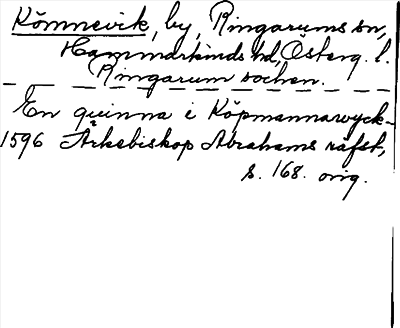 Kömnevik, by, Ringarums sn,
Hammarkinds hd, Österg. l.
Ringarum socken.
En quinna i Köpmannawyck -
1596 Ärkebiskop Abrahams räfst,
s. 168. orig.